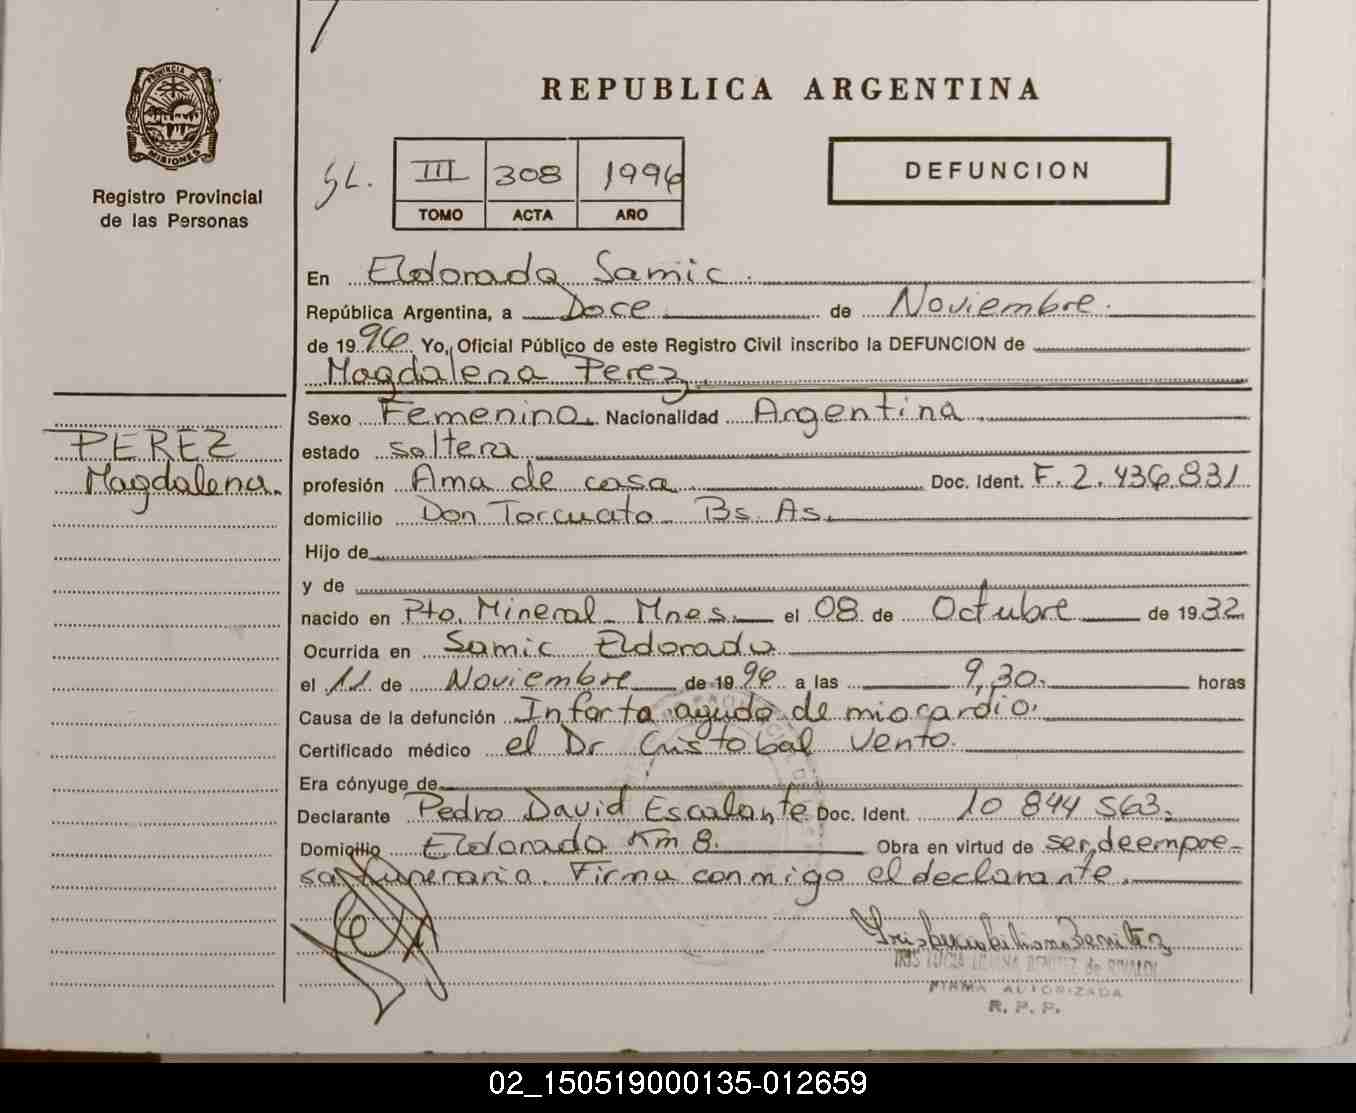 REPUBLICA ARGENTINA
PROVINCIA DE
MISIONES
Registro Provincial
de las Personas
SL.
III 308 1996
TOMO ACTA AÑO
DEFUNCION
En Eldorado Samic
República Argentina, a Doce de Noviembre
de 1996 Yo, Oficial Público de este Registro Civil inscribo la DEFUNCION de
Magdalena Perez
PEREZ
Magdalena.
Sexo Femenino. Nacionalidad Argentina
estado soltera
profesión Ama de casa Doc. Ident. F. 2.436.831
domicilio Don Torcuato Bs. As.
Hijo de
y de
nacido en Pto. Mineral Mnes. el 08 de Octubre de 1932
Ocurrida en Samic Eldorado
el 11 de Noviembre de 1996 a las 9,30. horas
Causa de la defunción Infarto agudo de miocardio.
Certificado médico el Dr Cristobal Vento.
Era cónyuge de
Declarante Pedro David Escalante Doc. Ident. 10 844 563.
Domicilio Eldorado Km 8. Obra en virtud de ser de empre-
sa funeraria. Firma conmigo el declarante.
FIRMA AUTORIZADA
R. P. P.
02_150519000135-012659